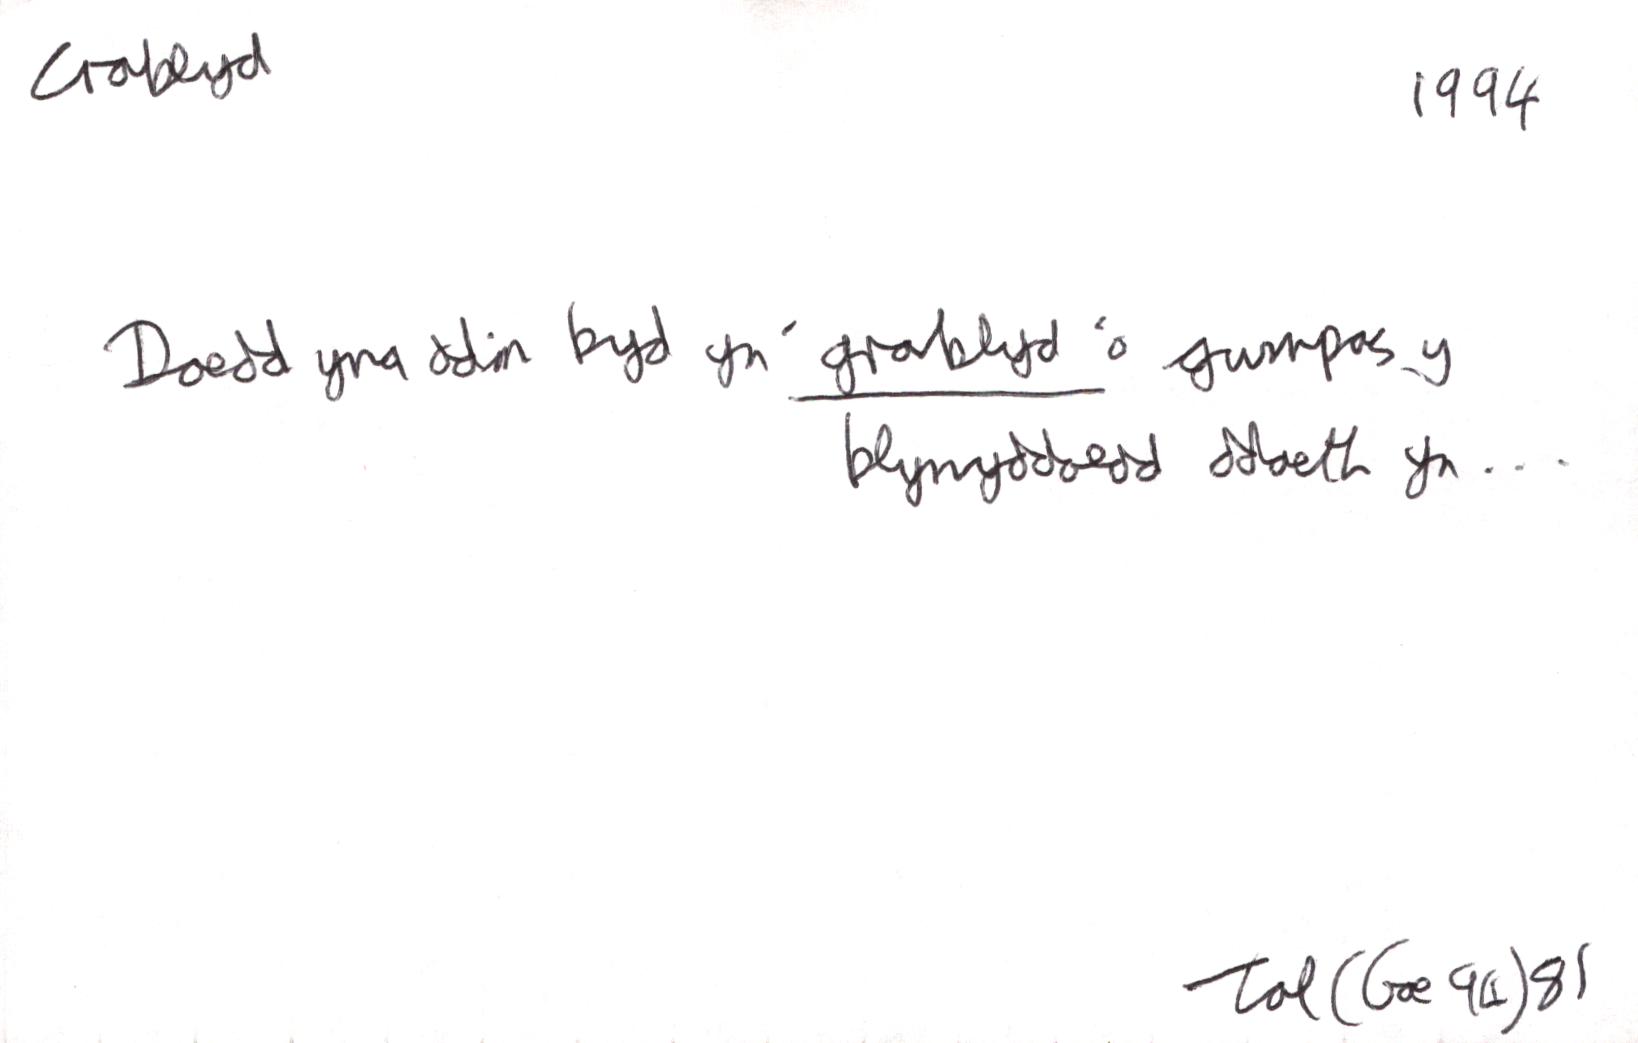 Crablyd
1994
Doedd yna ddim byd yn 'grablyd' o gwmpas y
blynyddoedd ddaeth yn ...
Tal (Gae 94) 81